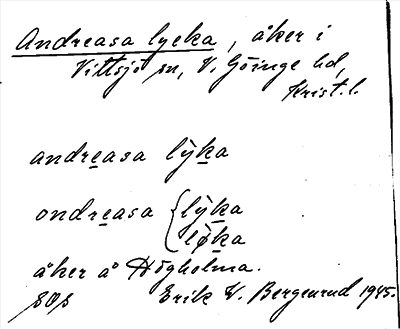 Andreasa lycka, åker i
Vittsjö sn, V. Göinge hd,
Krist. l.
andreasa lỳka
ondreasa { lỳka
lø̀ka
åker å Högholma.
Erik W. Bergenrud 1945.